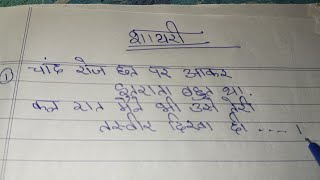 शायरी
① चांद रोज छत पर आकर
इतराता बहुत था.
कल रात मैंने भी उसे तेरी
तस्वीर दिखा दी ---- ।